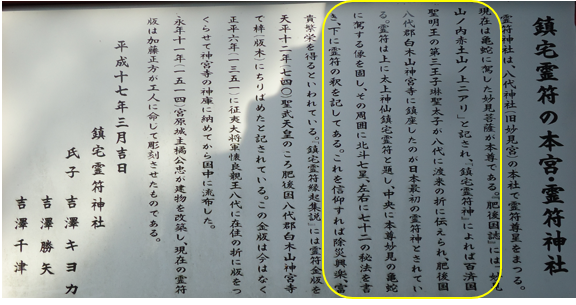 鎮宅霊符の本宮・霊符神社
霊符神社は、八代神社(旧妙見宮)の本社で霊符尊星をまつる。
現在は亀蛇に駕した妙見菩薩が本尊である。『肥後国誌』には、「妙見
山ノ内赤土山ノ上ニアリ」と記され、『鎮宅霊符神』によれば百済国
聖明王の第三王子琳聖太子が八代に渡来の折に伝えられ、肥後国
八代郡白木山神宮寺に鎮座したのが日本最初の霊符神とされてい
る。霊符は上に太上神仙鎮宅霊符と題し、中央に本尊妙見の亀蛇
に駕する像を図し、その周囲に北斗七星、左右に七十二の秘法を書
き、下に霊符の釈を記してある。これを信仰すれば除災興楽、富
貴繁栄を得るといわれている。『鎮宅霊符縁起集説』には霊符金版を
天平十二年(七四〇)聖武天皇のころ肥後国八代郡白木山神宮寺
で梓(版木)にちりばめたと記されている。この金版は今はなく
正平六年(一三五一)に征夷大将軍懐良親王八代に在住の折に版をつ
くらせて神宮寺の神庫に納めてから国中に流布した。
永年十一年(一五一四)宮原城主橘公忠が建物を改築し、現在の霊符
版は加藤正方が工人に命じて彫刻させたものである。
平成十七年三月吉日
鎮宅霊符神社
氏子 吉澤キヨカ
吉澤勝矢
吉澤千津